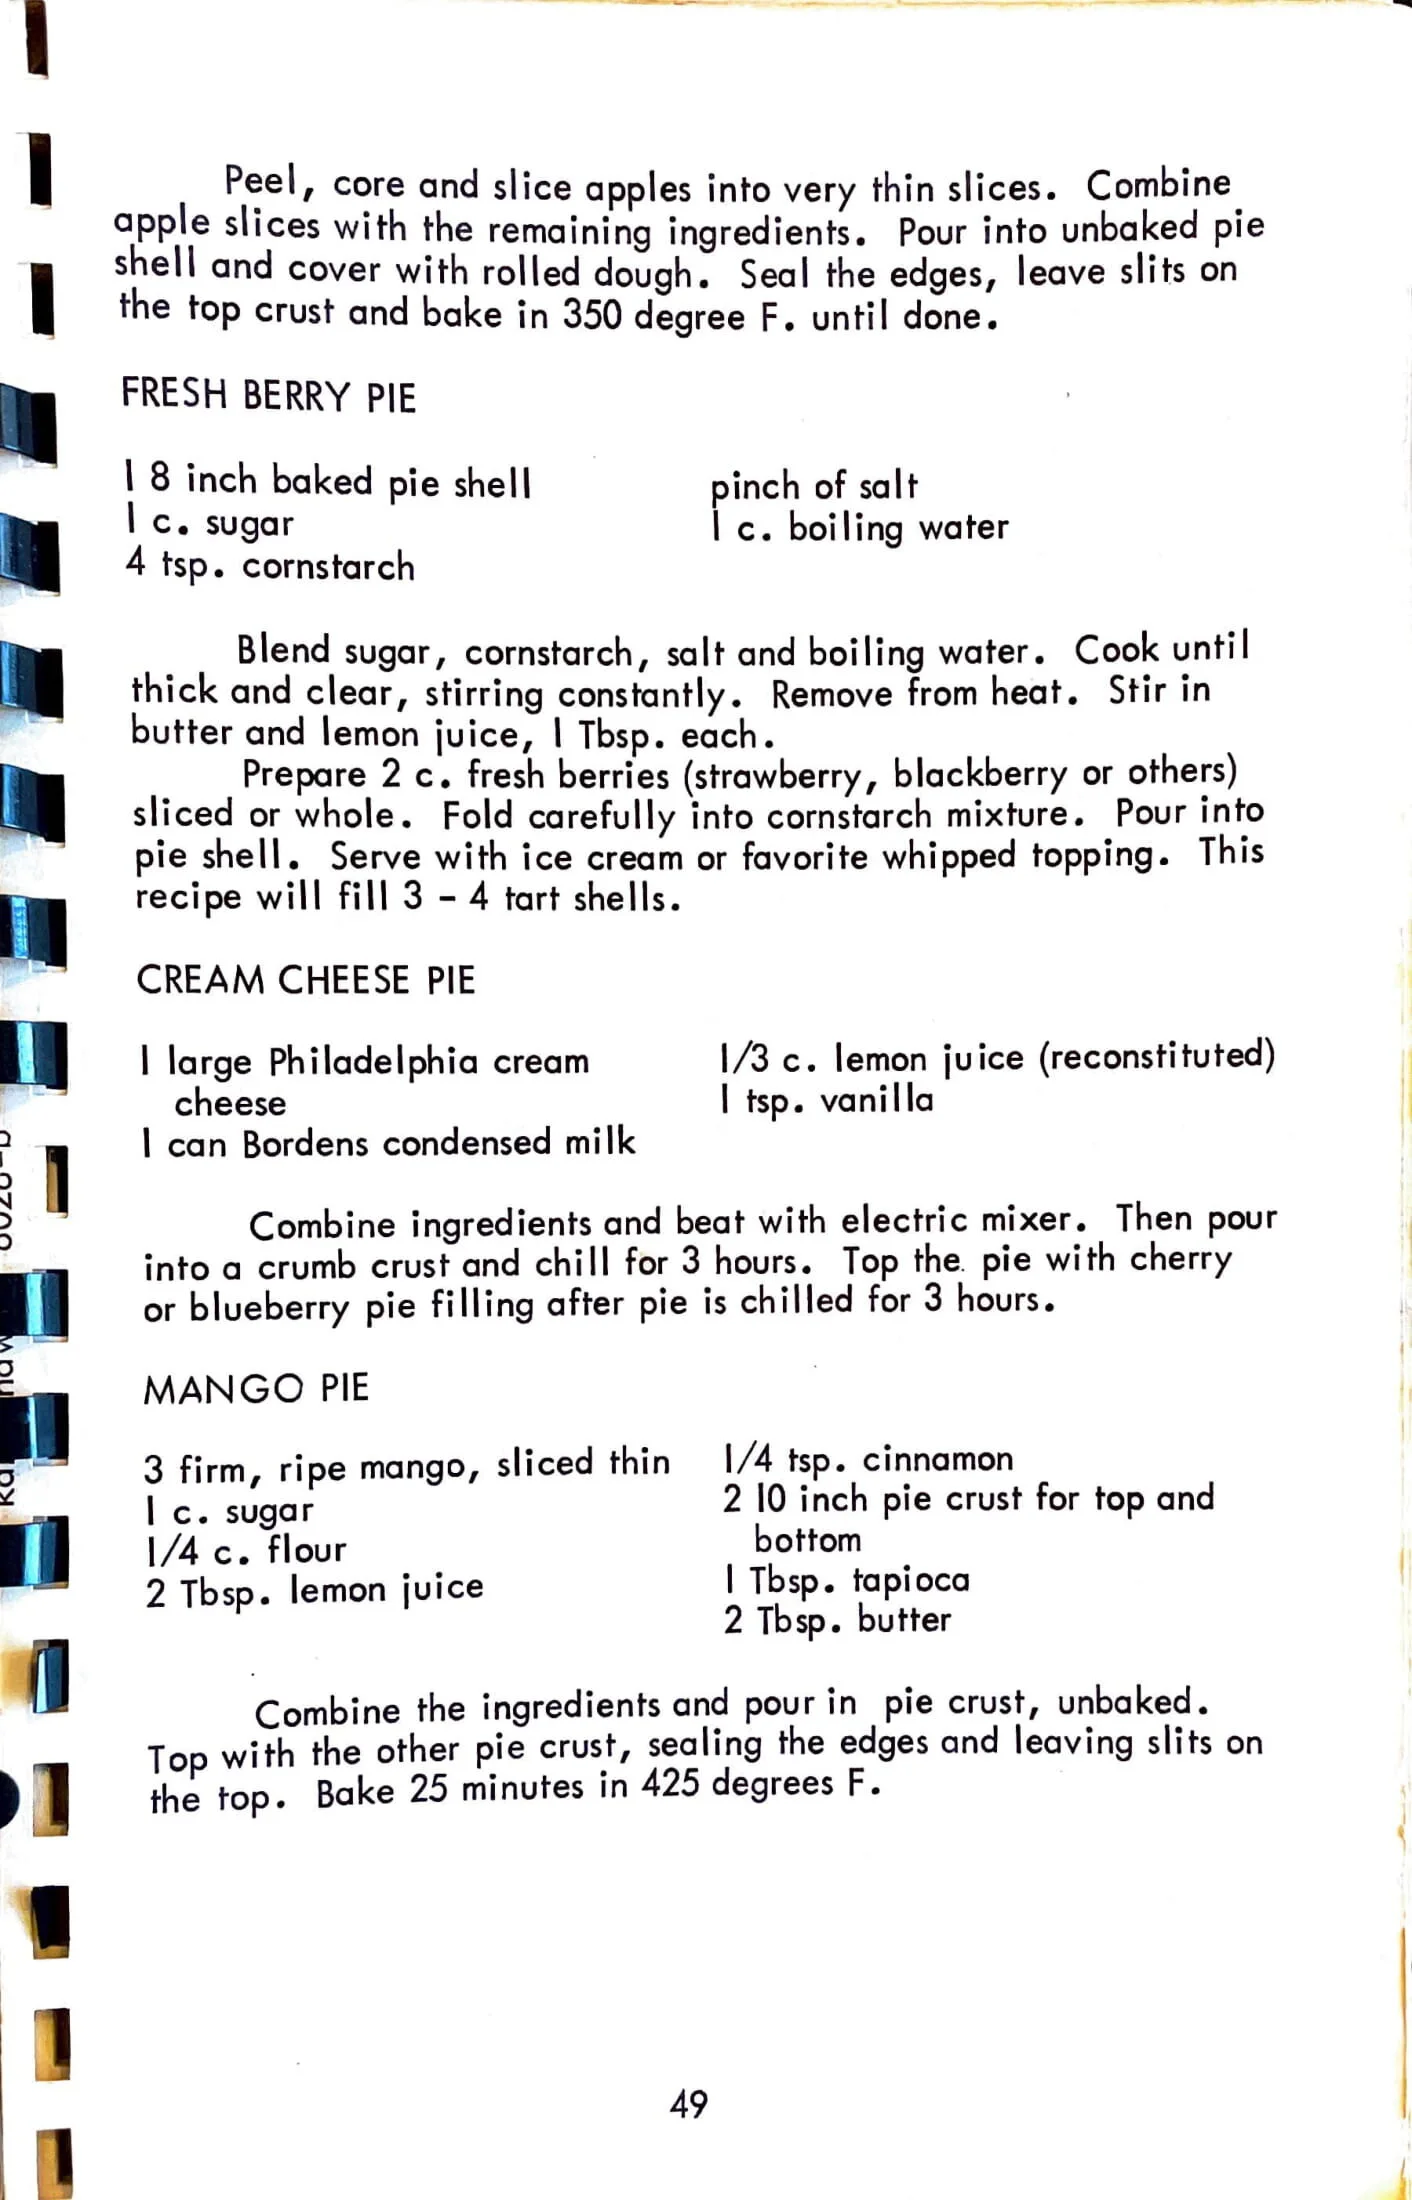 Peel, core and slice apples into very thin slices. Combine
apple slices with the remaining ingredients. Pour into unbaked pie
shell and cover with rolled dough. Seal the edges, leave slits on
the top crust and bake in 350 degree F. until done.
FRESH BERRY PIE
1 8 inch baked pie shell
1 c. sugar
4 tsp. cornstarch
pinch of salt
1 c. boiling water
Blend sugar, cornstarch, salt and boiling water. Cook until
thick and clear, stirring constantly. Remove from heat. Stir in
butter and lemon juice, 1 Tbsp. each.
Prepare 2 c. fresh berries (strawberry, blackberry or others)
sliced or whole. Fold carefully into cornstarch mixture. Pour into
pie shell. Serve with ice cream or favorite whipped topping. This
recipe will fill 3 - 4 tart shells.
CREAM CHEESE PIE
1 large Philadelphia cream
cheese
1 can Bordens condensed milk
1/3 c. lemon juice (reconstituted)
1 tsp. vanilla
Combine ingredients and beat with electric mixer. Then pour
into a crumb crust and chill for 3 hours. Top the. pie with cherry
or blueberry pie filling after pie is chilled for 3 hours.
MANGO PIE
3 firm, ripe mango, sliced thin
1 c. sugar
1/4 c. flour
2 Tbsp. lemon juice
1/4 tsp. cinnamon
2 10 inch pie crust for top and
bottom
1 Tbsp. tapioca
2 Tbsp. butter
Combine the ingredients and pour in pie crust, unbaked.
Top with the other pie crust, sealing the edges and leaving slits on
the top. Bake 25 minutes in 425 degrees F.
49